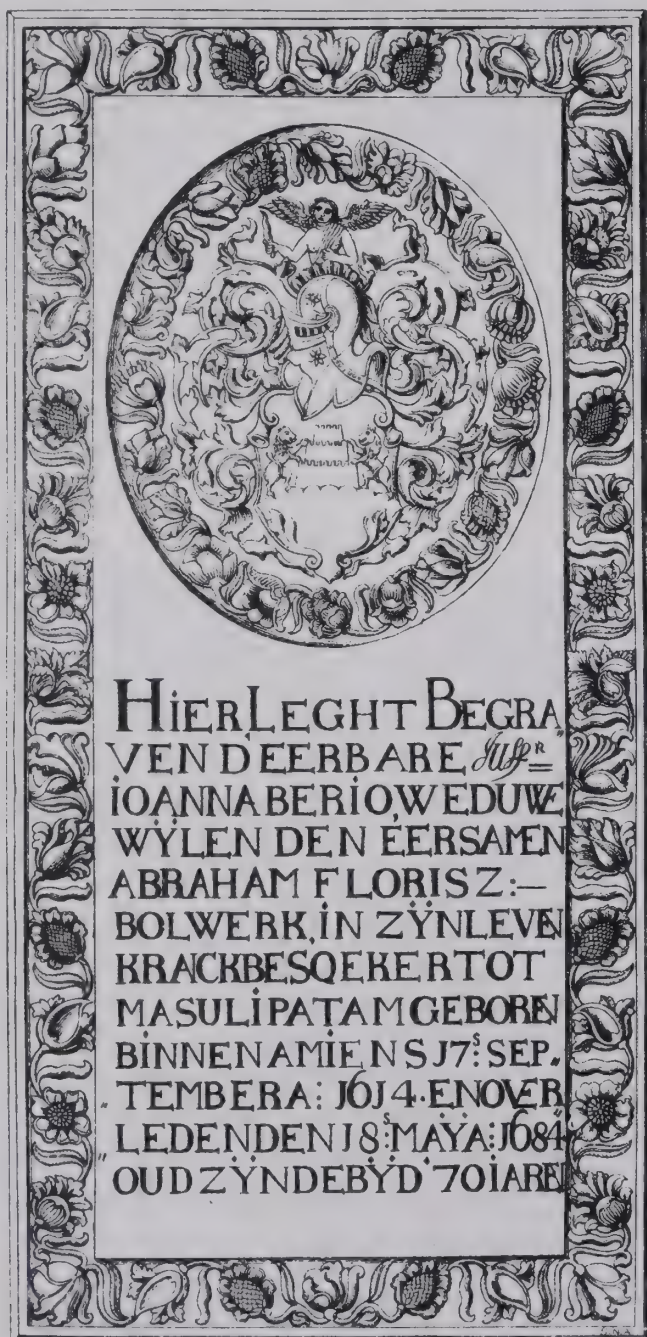 HiER LEGHT BEGRA„
VEN D'EERBARE Juffr
iOANNA BERiO, WEDUWE
WŸLEN DEN EERSAMEN
ABRAHAM FLORiS Z:—
BOLWERK, iN ZŸN LEVEN
KRAiCKBESOEKER TOT
MASULiPATAM GEBOREN
BiNNEN AMiENS J7:S SEP„
„TEMBER A: J6J4. EN OVER„
„LEDEN DEN J8:S MAŸ A: J684
OUD ZŸNDE BŸ D' 70 iAREN